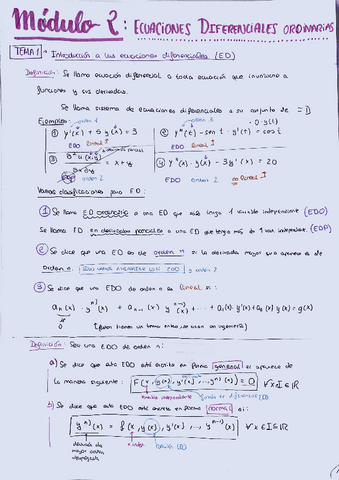 Módulo 2: ECUACIONES DIFERENCIALES ORDINARIAS
TEMA 1: Introducción a las ecuaciones diferenciales (ED)
Definición: Se llama ecuación diferencial a toda ecuación que involucra a
funciones y sus derivadas.
Se llama sistema de ecuaciones diferenciales a su conjunto de
Ejemplos: orden 1
① y'(x) + 6 y(x) = 3
EDO lineal
② y''(t) - sen t · y'(t) = cos t
EDO lineal
③ ∂²u(x,y) / ∂x∂y = x + y
orden 2
④ y''(x) · y(x) - 3y'(x) = 20
EDO orden 2 no lineal
Vamos clasificaciones para ED:
① Se llama ED ordinaria a una ED que solo tenga 1 variable independiente (EDO)
Se llama ED en derivadas parciales a una ED que tenga más de 1 var. independiente. (EDP)
② Se dice que una ED es de orden n si la derivada mayor que aparece es de
orden n. y orden 2
③ Se dice que una EDO de orden n es lineal si:
aₙ(x) · yⁿ⁾(x) + aₙ₋₁(x) yⁿ⁻¹⁾(x) + ... + a₁(x) y'(x) + a₀(x) y(x) = g(x)
0
Definición: Sea una EDO de orden n:
a) Se dice que esta EDO está escrita en forma general si aparece de
la manera siguiente: F(x, y(x), y'(x), ..., yⁿ⁾(x)) = 0 ∀x∈I⊆ℝ
variable independiente
b) Se dice que esta EDO está escrita en forma normal si:
yⁿ⁾(x) = f(x, y(x), y'(x), ..., yⁿ⁻¹⁾(x)) ∀x∈I⊆ℝ
derivada de
mayor orden
despejada